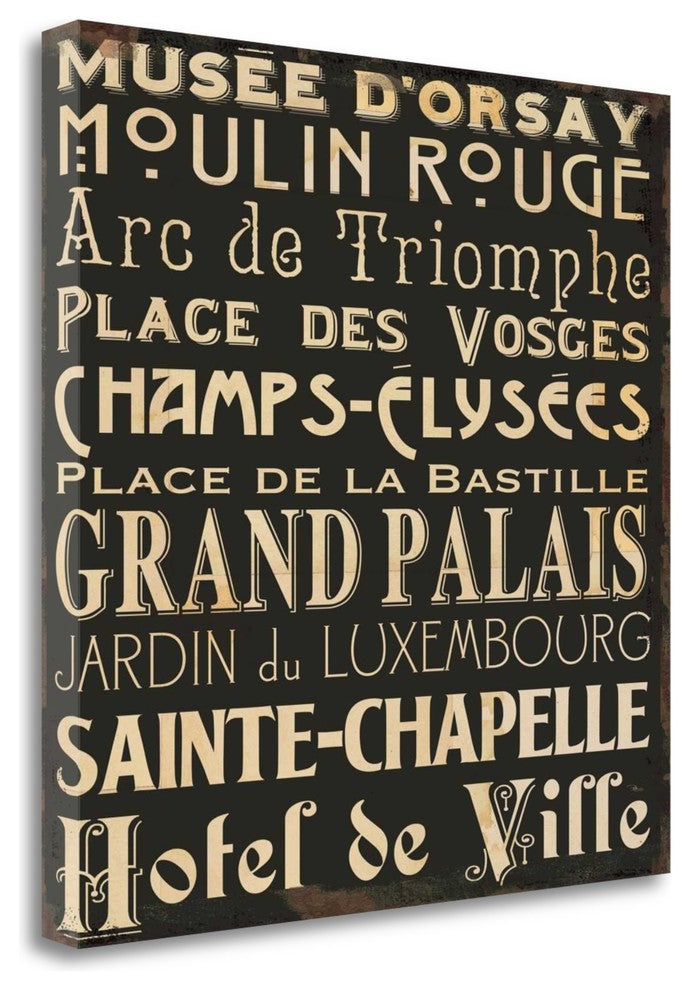 MUSÉE D'ORSAY
MOULIN ROUGE
Arc de Triomphe
PLACE DES VOSGES
CHAMPS-ÉLYSÉES
PLACE DE LA BASTILLE
GRAND PALAIS
JARDIN du LUXEMBOURG
SAINTE-CHAPELLE
Hotel de Ville